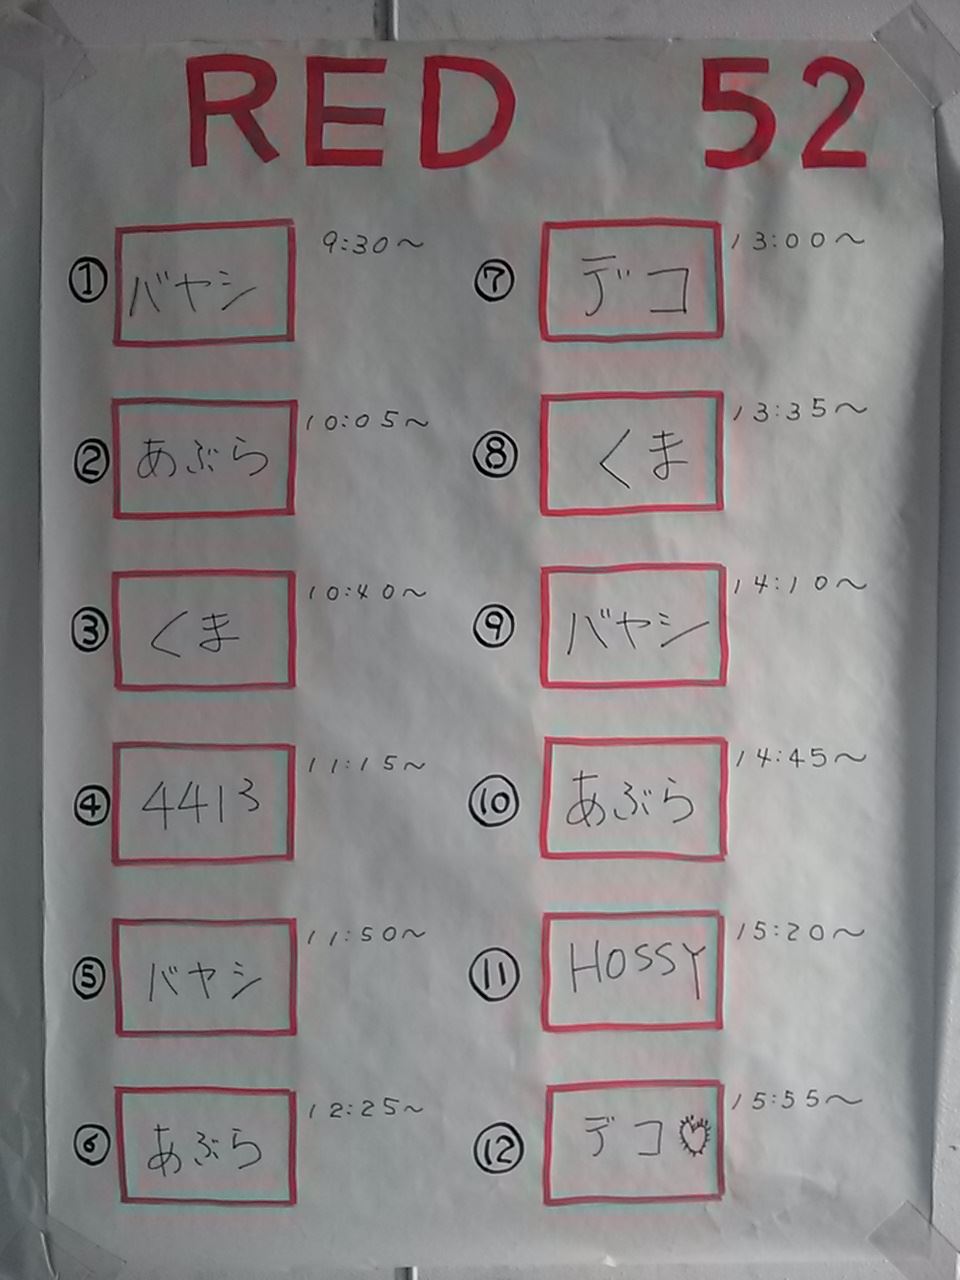 RED 52
① バヤシ 9:30～
② あぶら 10:05～
③ くま 10:40～
④ 4413 11:15～
⑤ バヤシ 11:50～
⑥ あぶら 12:25～
⑦ デコ 13:00～
⑧ くま 13:35～
⑨ バヤシ 14:10～
⑩ あぶら 14:45～
⑪ HOSSY 15:20～
⑫ デコ♡ 15:55～